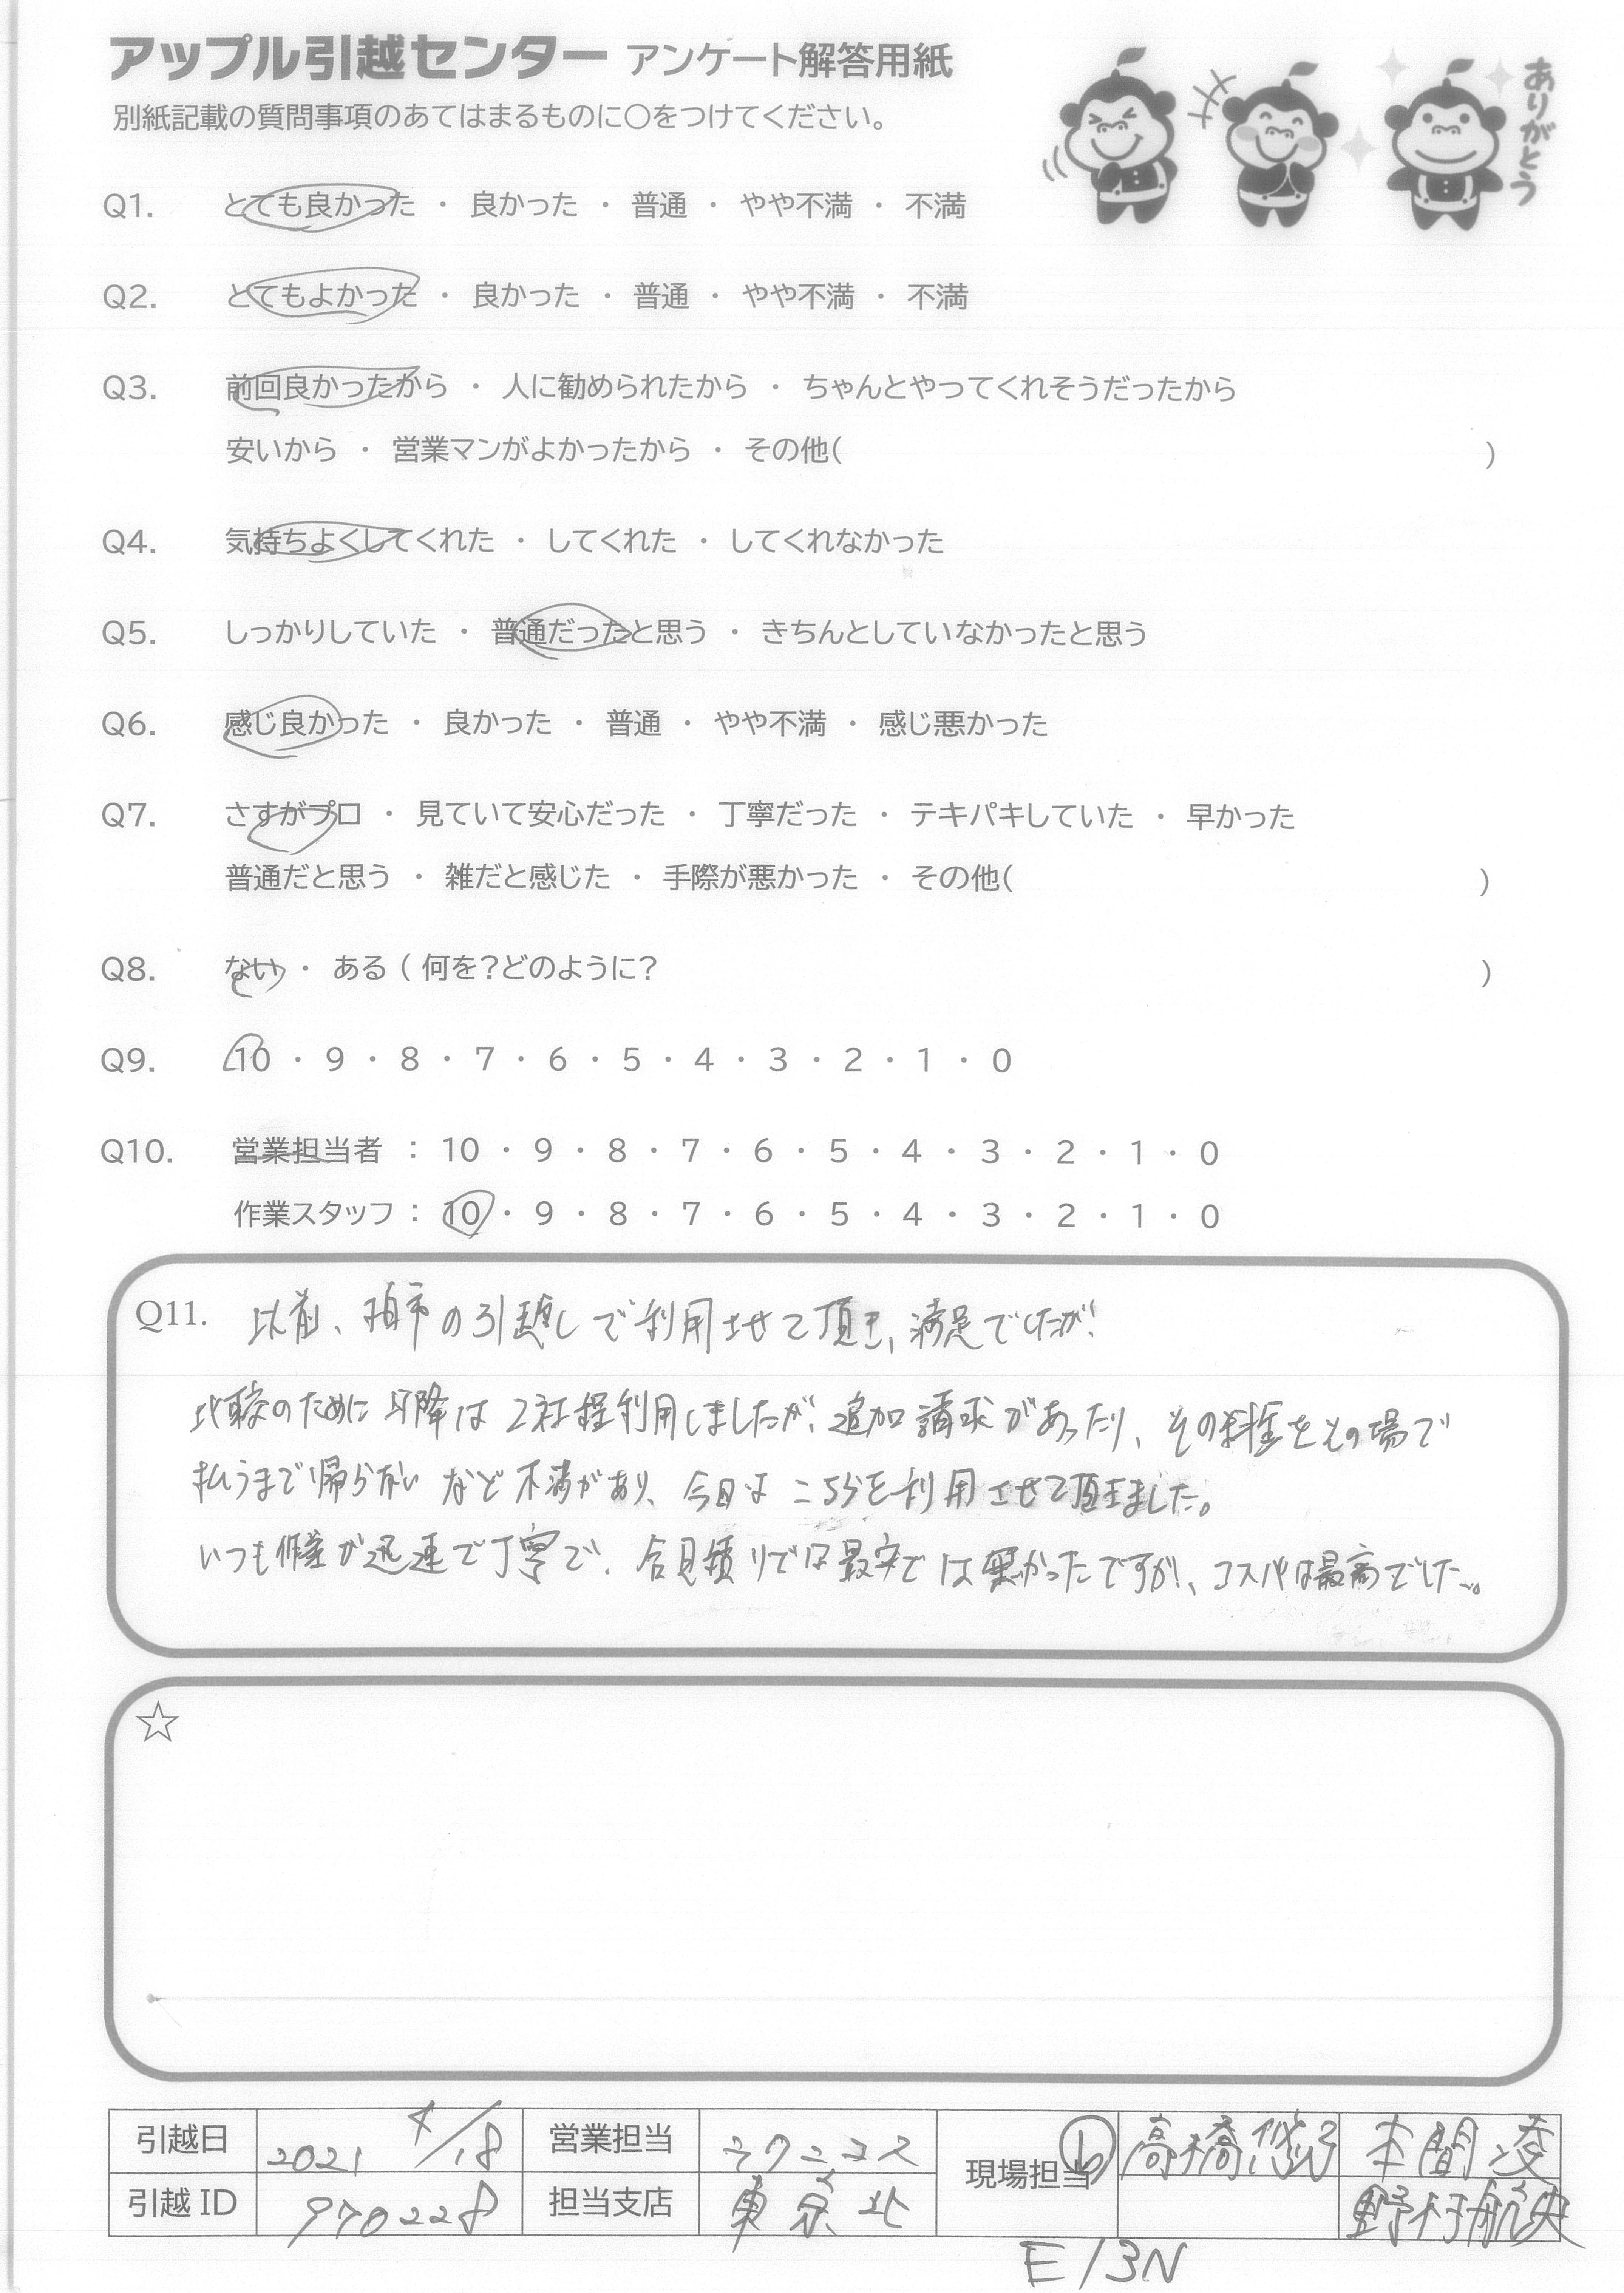 アップル引越センター アンケート解答用紙
ありがとう
別紙記載の質問事項のあてはまるものに○をつけてください。
Q1. とても良かった ・ 良かった ・ 普通 ・ やや不満 ・ 不満
Q2. とてもよかった ・ 良かった ・ 普通 ・ やや不満 ・ 不満
Q3. 前回良かったから ・ 人に勧められたから ・ ちゃんとやってくれそうだったから
安いから ・ 営業マンがよかったから ・ その他( )
Q4. 気持ちよくしてくれた ・ してくれた ・ してくれなかった
Q5. しっかりしていた ・ 普通だったと思う ・ きちんとしていなかったと思う
Q6. 感じ良かった ・ 良かった ・ 普通 ・ やや不満 ・ 感じ悪かった
Q7. さすがプロ ・ 見ていて安心だった ・ 丁寧だった ・ テキパキしていた ・ 早かった
普通だと思う ・ 雑だと感じた ・ 手際が悪かった ・ その他( )
Q8. ない ・ ある ( 何を?どのように? )
Q9. 10 ・ 9 ・ 8 ・ 7 ・ 6 ・ 5 ・ 4 ・ 3 ・ 2 ・ 1 ・ 0
Q10. 営業担当者 : 10 ・ 9 ・ 8 ・ 7 ・ 6 ・ 5 ・ 4 ・ 3 ・ 2 ・ 1 ・ 0
作業スタッフ : 10 ・ 9 ・ 8 ・ 7 ・ 6 ・ 5 ・ 4 ・ 3 ・ 2 ・ 1 ・ 0
Q11. 以前、柏市の引越しで利用させて頂き、満足でしたが、
比較のために以降は2社程利用しましたが、追加請求があったり、その料金をその場で
払うまで帰らない など不満があり、今回は こちらを利用させて頂きました。
いつも作業が迅速で丁寧で、合見積りでは最安では無かったですが、コスパは最高でした。
☆
引越日 2021 4/18 営業担当 ラクニコス 現場担当 高橋 本間 凌
引越ID 970228 担当支店 東京北 野村航史
E13N